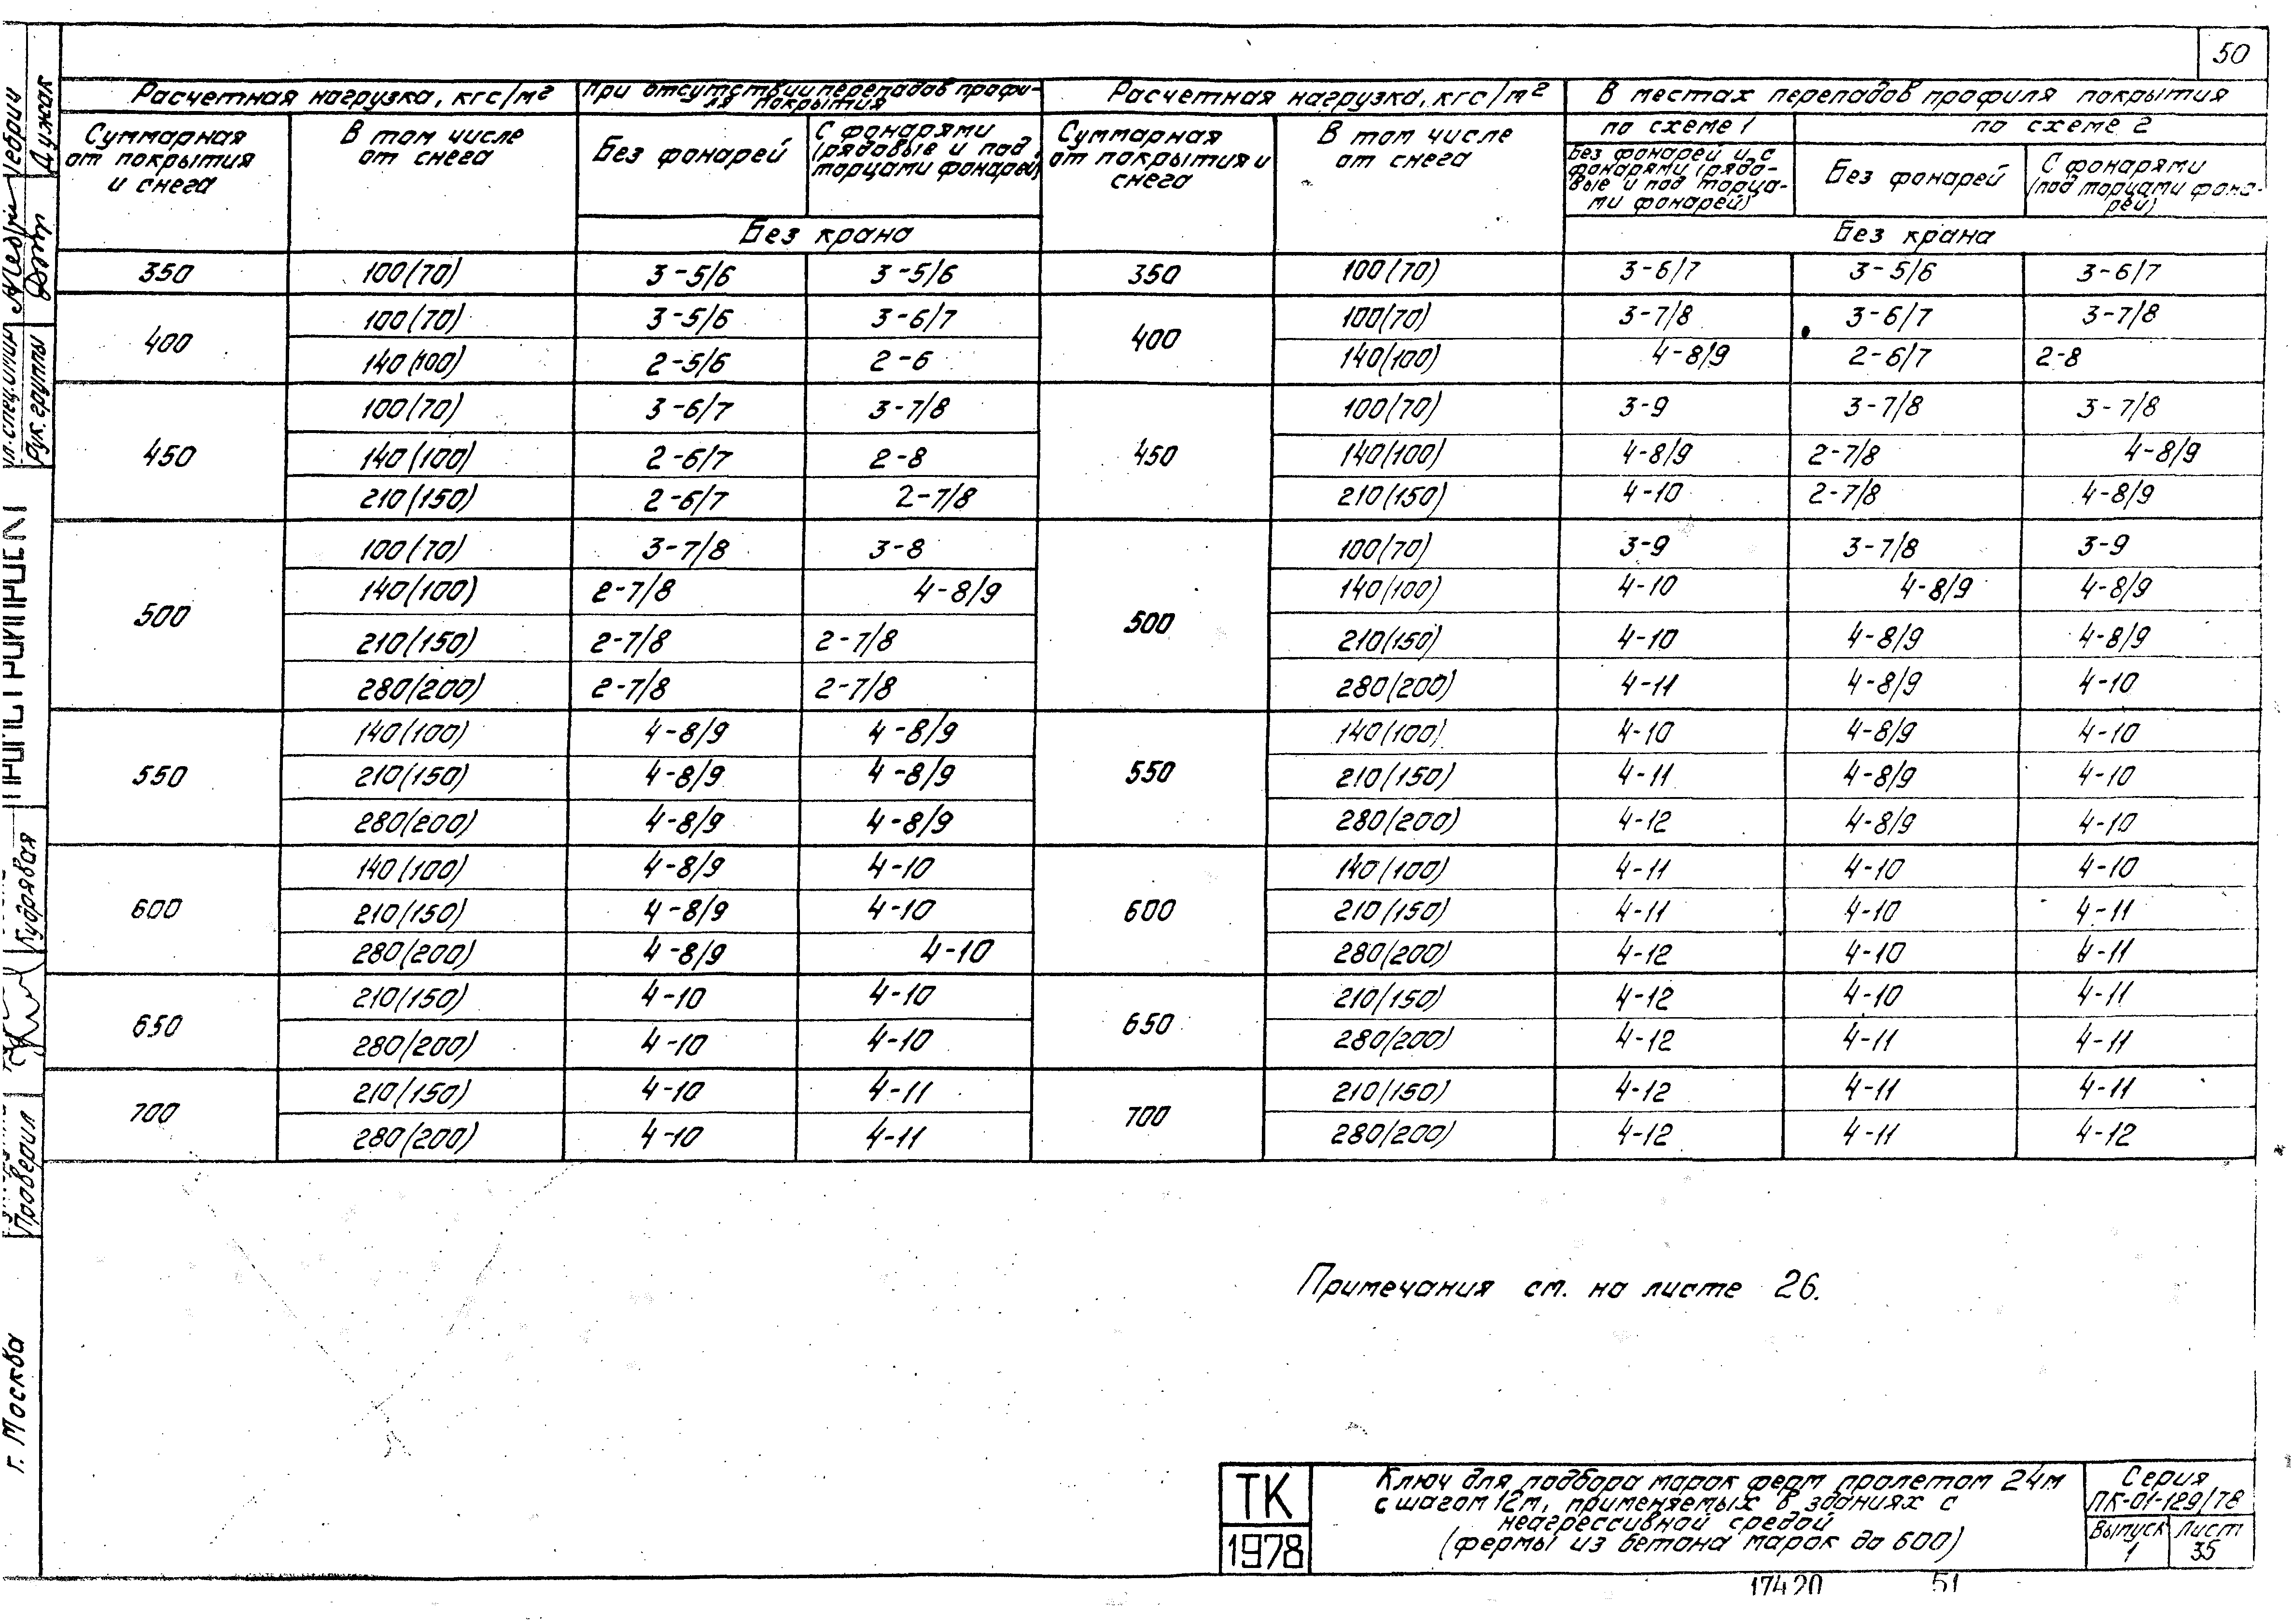 50
Расчетная нагрузка, кгс/м² | При отсутствии перепадов профи-
ля покрытия | Расчетная нагрузка, кгс/м² | В местах перепадов профиля покрытия
Суммарная
от покрытия
и снега | В том числе
от снега | Без фонарей | С фонарями
(рядовые и под
торцами фонарей) | Суммарная
от покрытия и
снега | В том числе
от снега | по схеме 1 | по схеме 2
Без фонарей и с
фонарями (рядо-
вые и под торца-
ми фонарей) | Без фонарей | С фонарями
(под торцами фона-
рей)
Без крана | Без крана
350 | 100(70) | 3-5/6 | 3-5/6 | 350 | 100(70) | 3-6/7 | 3-5/6 | 3-6/7
400 | 100(70) | 3-5/6 | 3-6/7 | 400 | 100(70) | 3-7/8 | 3-6/7 | 3-7/8
140(100) | 2-5/6 | 2-6 | 140(100) | 4-8/9 | 2-6/7 | 2-8
450 | 100(70) | 3-6/7 | 3-7/8 | 450 | 100(70) | 3-9 | 3-7/8 | 3-7/8
140(100) | 2-6/7 | 2-8 | 140(100) | 4-8/9 | 2-7/8 | 4-8/9
210(150) | 2-6/7 | 2-7/8 | 210(150) | 4-10 | 2-7/8 | 4-8/9
500 | 100(70) | 3-7/8 | 3-8 | 500 | 100(70) | 3-9 | 3-7/8 | 3-9
140(100) | 2-7/8 | 4-8/9 | 140(100) | 4-10 | 4-8/9 | 4-8/9
210(150) | 2-7/8 | 2-7/8 | 210(150) | 4-10 | 4-8/9 | 4-8/9
280(200) | 2-7/8 | 2-7/8 | 280(200) | 4-11 | 4-8/9 | 4-10
550 | 140(100) | 4-8/9 | 4-8/9 | 550 | 140(100) | 4-10 | 4-8/9 | 4-10
210(150) | 4-8/9 | 4-8/9 | 210(150) | 4-11 | 4-8/9 | 4-10
280(200) | 4-8/9 | 4-8/9 | 280(200) | 4-12 | 4-8/9 | 4-10
600 | 140(100) | 4-8/9 | 4-10 | 600 | 140(100) | 4-11 | 4-10 | 4-10
210(150) | 4-8/9 | 4-10 | 210(150) | 4-11 | 4-10 | 4-11
280(200) | 4-8/9 | 4-10 | 280(200) | 4-12 | 4-10 | 4-11
650 | 210(150) | 4-10 | 4-10 | 650 | 210(150) | 4-12 | 4-10 | 4-11
280(200) | 4-10 | 4-10 | 280(200) | 4-12 | 4-11 | 4-11
700 | 210(150) | 4-10 | 4-11 | 700 | 210(150) | 4-12 | 4-11 | 4-11
280(200) | 4-10 | 4-11 | 280(200) | 4-12 | 4-11 | 4-12
Примечания см. на листе 26.
ТК
1978
Ключ для подбора марок ферм пролетом 24м
с шагом 12м, применяемых в зданиях с
неагрессивной средой
(фермы из бетона марок до 600)
Серия
ПК-01-129/78
Выпуск
1
Лист
35
17420 51
Дужак
Рук. группы
Кудрявая
Проверил
г. Москва